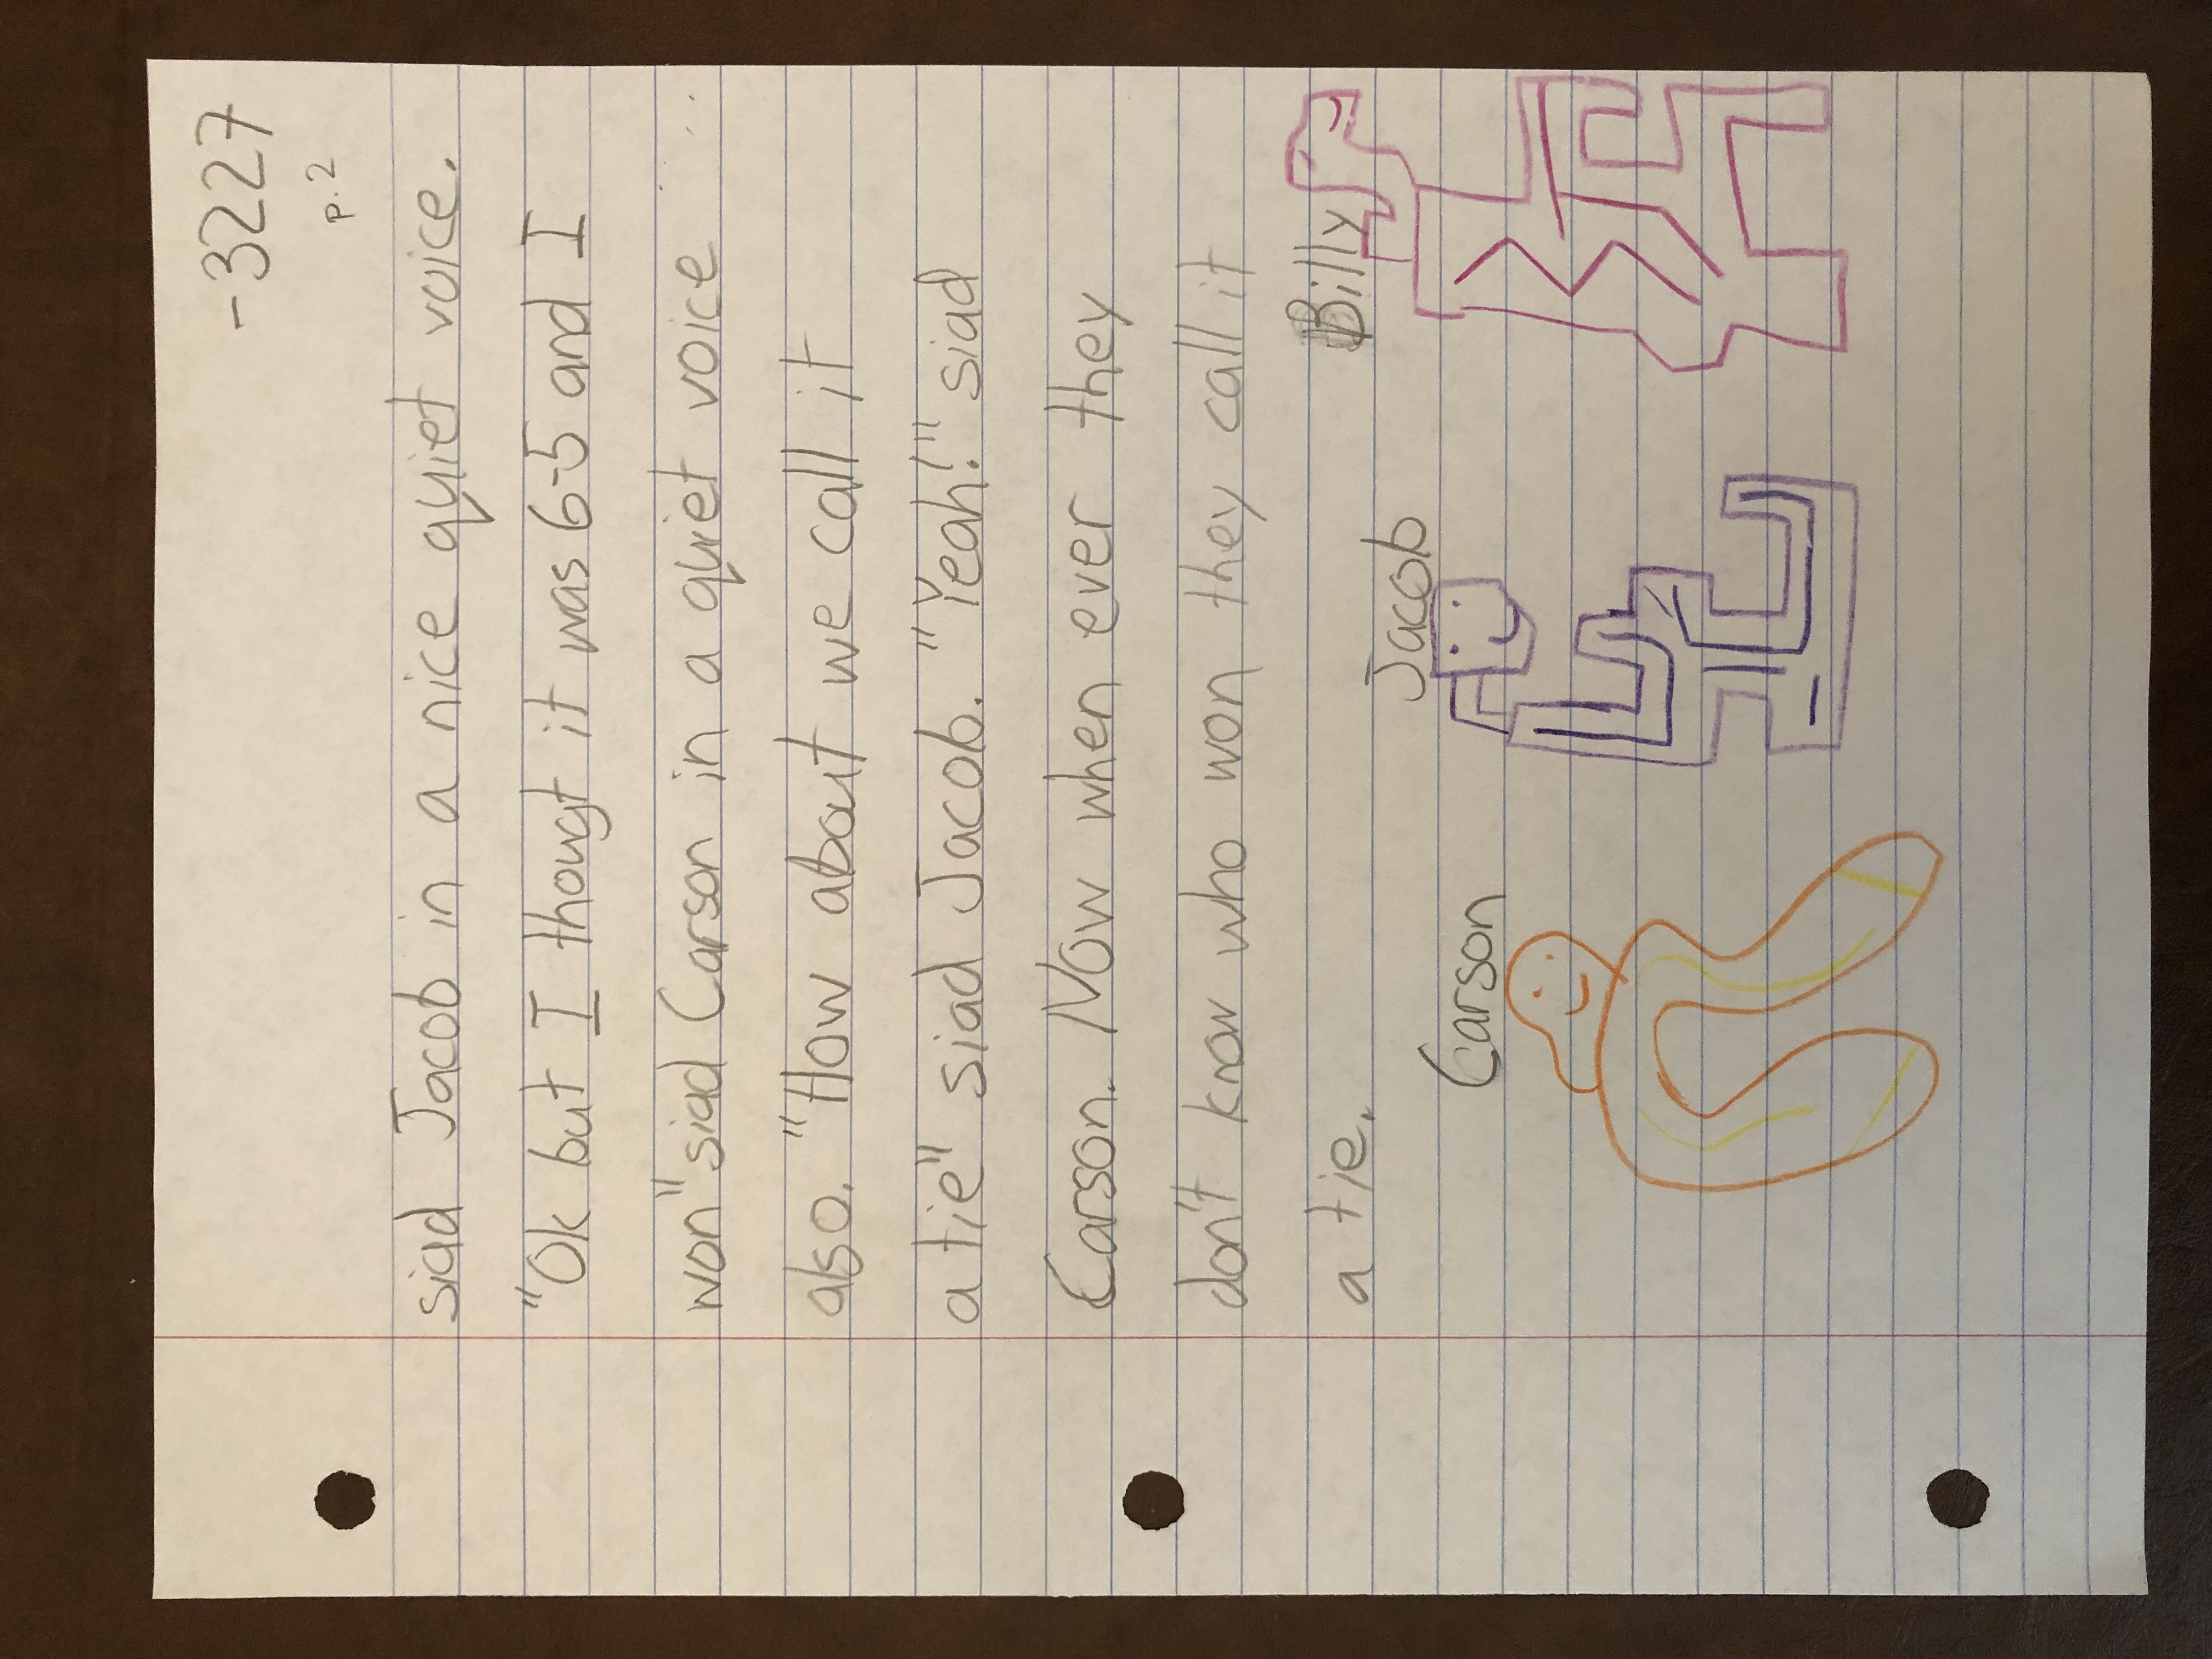 -3227
p.2
siad Jacob in a nice quiet voice.
"Ok but I thougt it was 6-5 and I
won" siad Carson in a quiet voice
also. "How about we call it
a tie" siad Jacob. "Yeah!" siad
Carson. Now when ever they
don't know who won they call it
a tie.
Billy
Jacob
Carson